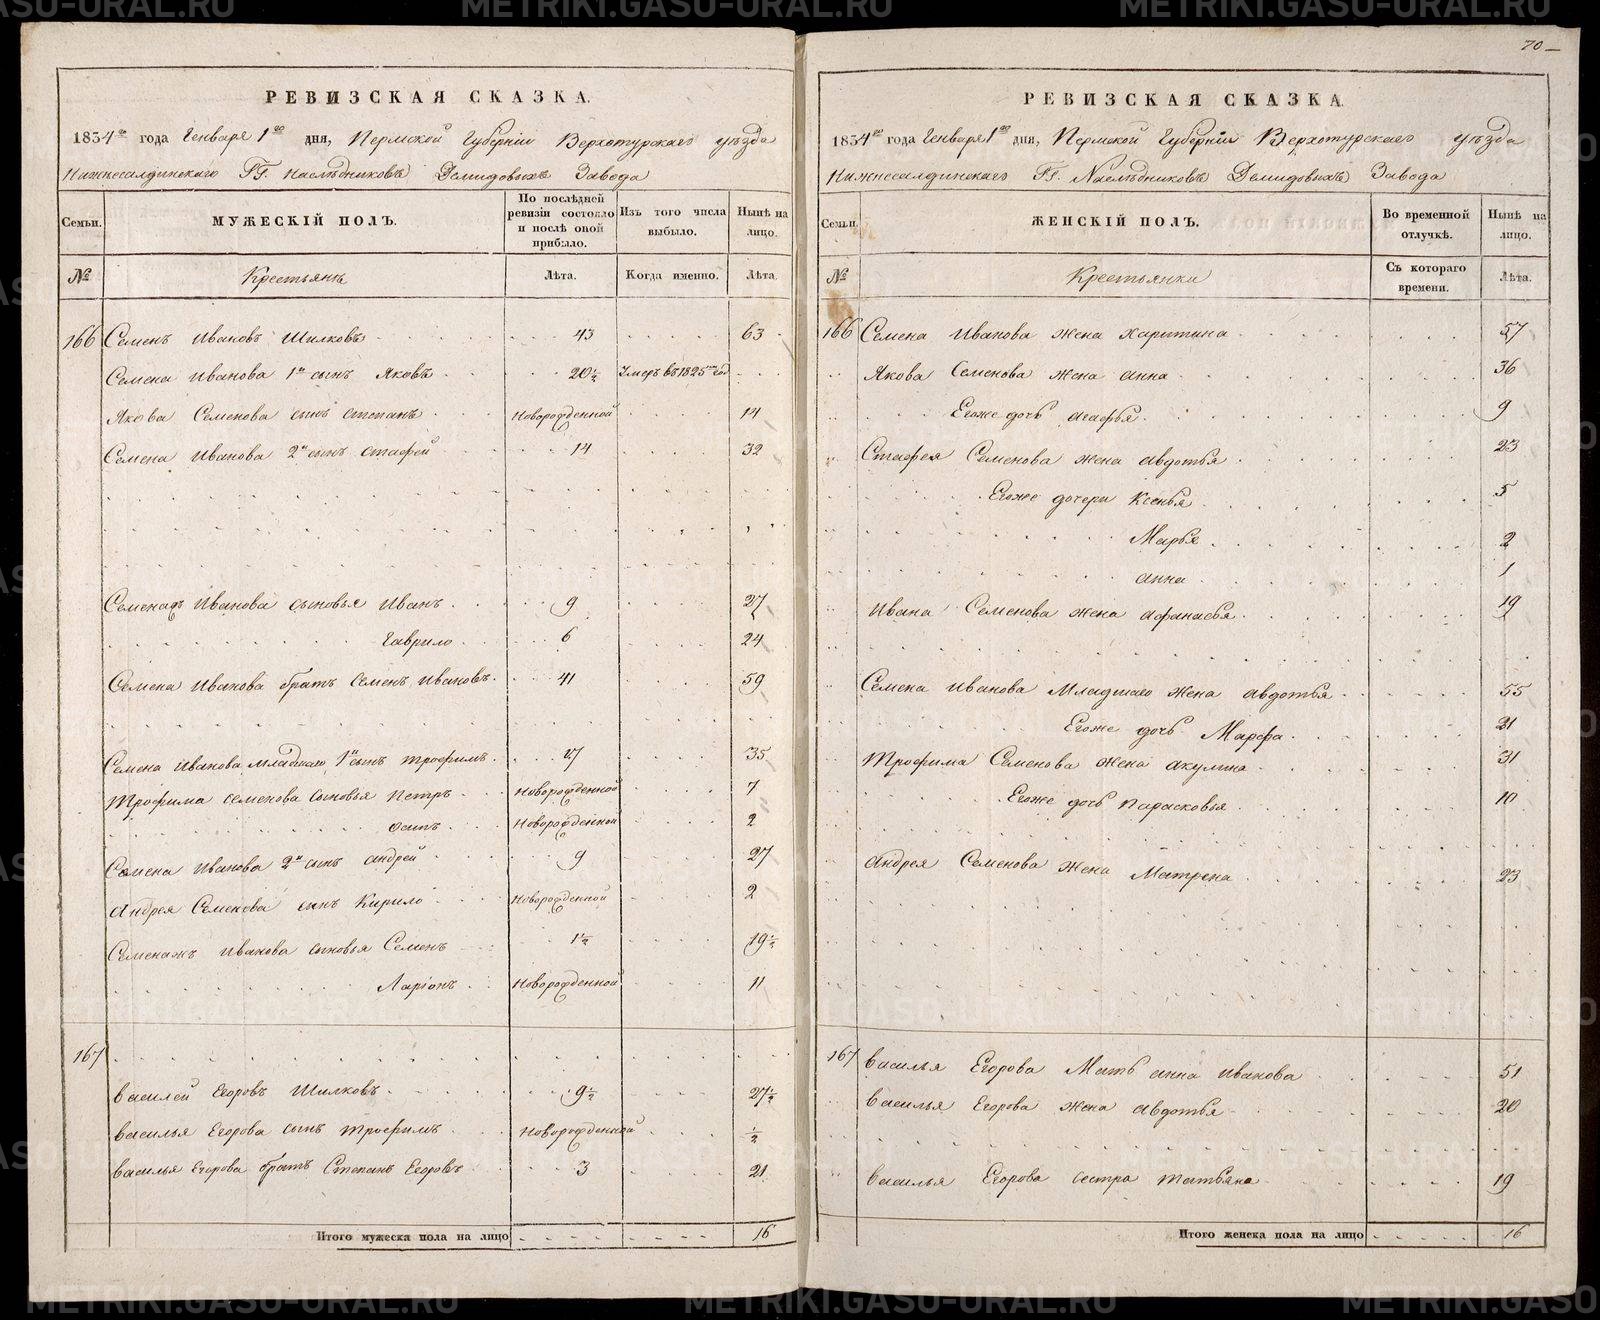 70
РЕВИЗСКАЯ СКАЗКА.
1834го года Генваря 1го дня, Пермской Губерніи Верхотурскаго уѣзда
Нижнесалдинскаго Гг. Наслѣдниковъ Демидовыхъ Завода
Семьи. МУЖЕСКІЙ ПОЛЪ. По послѣдней ревизіи состояло и послѣ оной прибыло. Изъ того числа выбыло. Нынѣ на лицо.
№ Крестьянъ Лѣта. Когда именно. Лѣта.
166 Семенъ Ивановъ Шилковъ 43 63
Семена Иванова 1й сынъ Яковъ 20½ Умеръ въ 1825 год
Якова Семенова сынъ Степанъ Новорожденной 14
Семена Иванова 2й сынъ Стафей 14 32
Семена Иванова сыновья Иванъ 9 27
Гаврило 6 24
Семена Иванова братъ Семенъ Ивановъ 41 59
Семена Иванова младшаго 1й сынъ Трофимъ 17 35
Трофима Семенова сыновья Петръ Новорожденной 7
Осипъ Новорожденной 2
Семена Иванова 2й сынъ Андрей 9 27
Андрея Семенова сынъ Кирило Новорожденной 2
Семенажъ Иванова сыновья Семенъ 1½ 19½
Ларіонъ Новорожденной 11
167
Василей Егоровъ Шилковъ 9½ 27½
Василья Егорова сынъ Трофимъ Новорожденной ½
Василья Егорова братъ Степанъ Егоровъ 3 21
Итого мужеска пола на лицо 16
РЕВИЗСКАЯ СКАЗКА.
1834го года Генваря 1го дня, Пермской Губерніи Верхотурскаго уѣзда
Нижнесалдинскаго Гг. Наслѣдниковъ Демидовыхъ Завода
Семьи. ЖЕНСКІЙ ПОЛЪ. Во временной отлучкѣ. Нынѣ на лицо.
№ Крестьянки Съ котораго времени. Лѣта.
166 Семена Иванова жена Харитина 57
Якова Семенова жена Анна 36
Егоже дочь Агафья 9
Стафея Семенова жена Авдотья 23
Егоже дочери Ксенья 5
Марья 2
Анна 1
Ивана Семенова жена Афанасья 19
Семена Иванова Младшаго жена Авдотья 55
Егоже дочь Марфа 21
Трофима Семенова жена Акулина 31
Егоже дочь Парасковья 10
Андрея Семенова жена Матрена 23
167 Василья Егорова Мать Анна Иванова 51
Василья Егорова жена Авдотья 20
Василья Егорова сестра Татьяна 19
Итого женска пола на лицо 16
METRIKI.GASO-URAL.RU